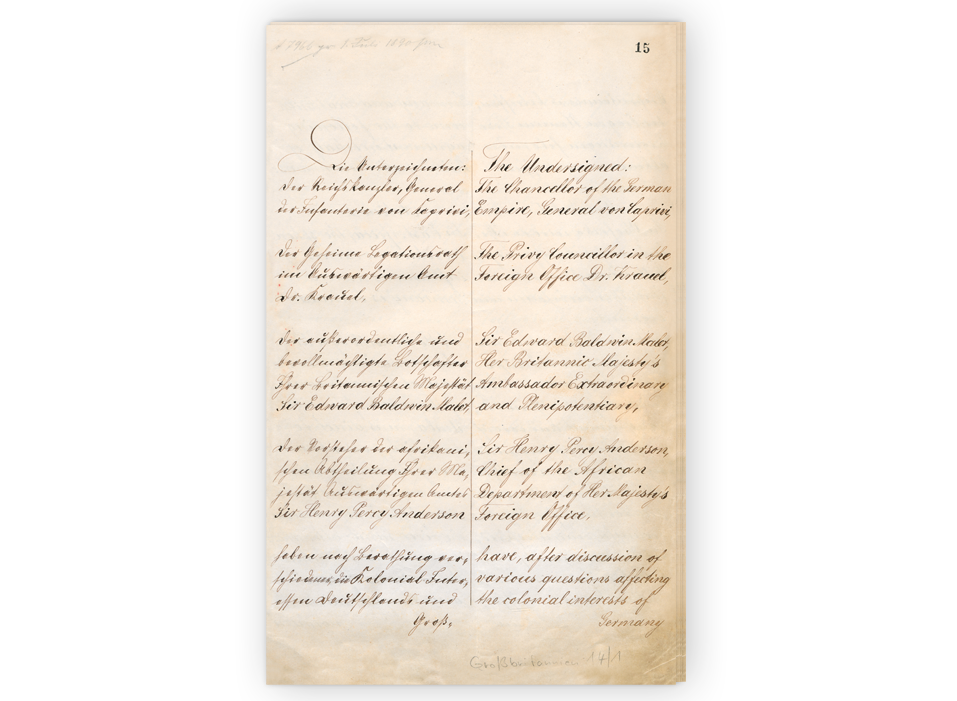 15
Die Unterzeichneten:
der Reichskanzler, General
der Infanterie von Kaprivi,
der Geheime Legationsrath
im Auswärtigen Amt
Dr. Krauel,
der außerordentliche und
bevollmächtigte Botschafter
Ihrer Britannischen Majestät
Sir Edward Baldwin Malet,
der Vorsteher der afrikani-
schen Abtheilung Ihrer Ma-
jestät Auswärtigen Amtes
Sir Henry Percy Anderson
haben nach Berathung ver-
schiedener, die Kolonial Inter-
essen Deutschlands und
Groß-
The Undersigned:
The Chancellor of the German
Empire, General von Caprivi,
The Privy Councillor in the
Foreign Office Dr. Krauel,
Sir Edward Baldwin Malet,
Her Britannic Majesty's
Ambassador Extraordinary
and Plenipotentiary,
Sir Henry Percy Anderson,
Chief of the African
Department of Her Majesty's
Foreign Office,
have, after discussion of
various questions affecting
the colonial interests of
Germany
Großbritannien 14/1